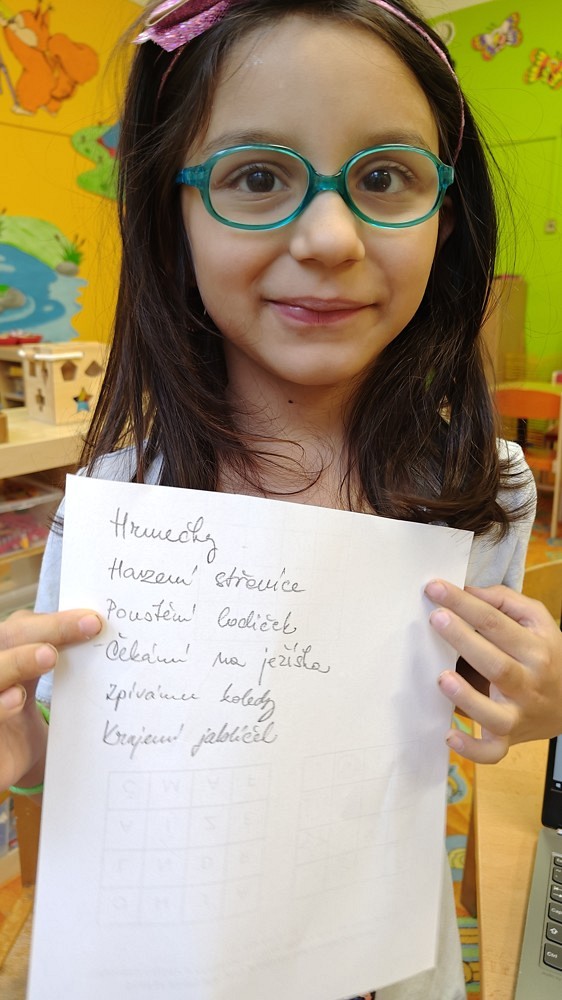 Hrnečky
Házení střevíce
Pouštění lodiček
Čekání na ježíška
Zpíváme koledy
Krájení jablíček